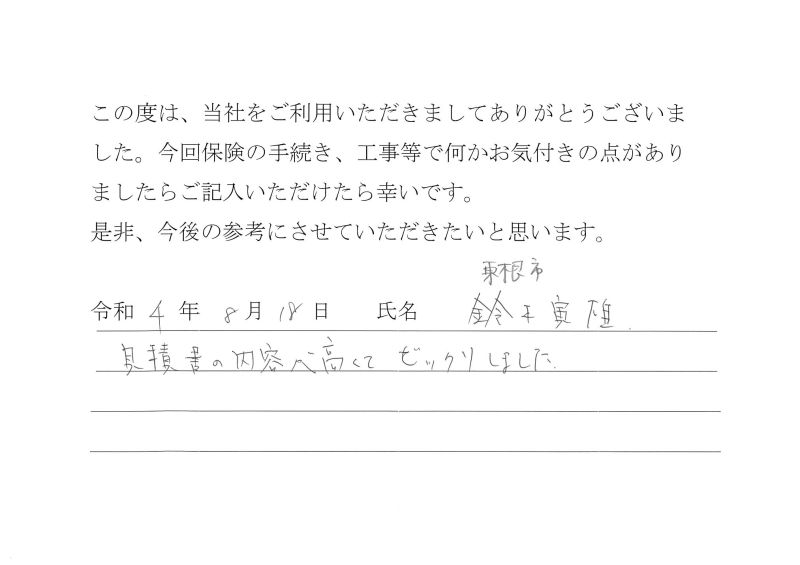 この度は、当社をご利用いただきましてありがとうございま
した。今回保険の手続き、工事等で何かお気付きの点があり
ましたらご記入いただけたら幸いです。
是非、今後の参考にさせていただきたいと思います。
東根市
令和 4 年 8 月 18 日 氏名 鈴木寅雄
見積書の内容 高くてビックリしました